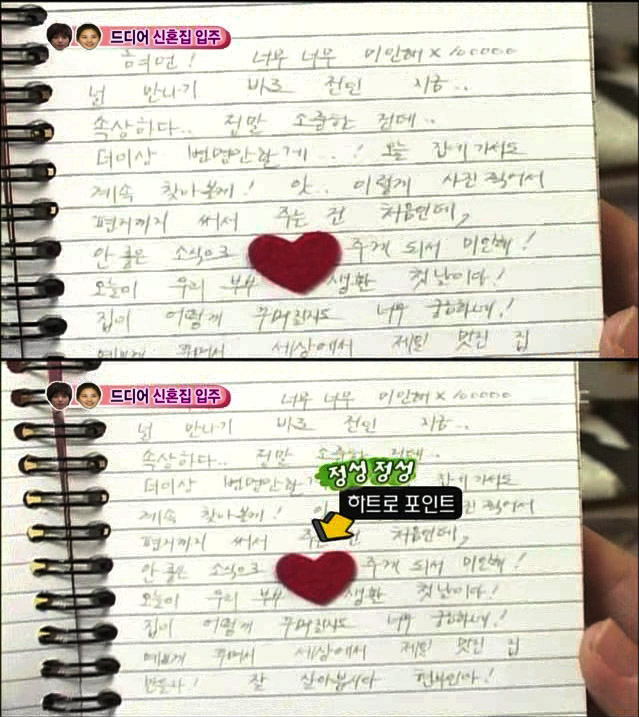 드디어 신혼집 입주
너무 너무 미안해 x 100000
널 만나기 바로 전인 지금..
속상하다.. 정말 소중한 건데..
더이상 변명안할게...! 오늘
계속 찾아볼게! 앗.. 이렇게 사진 찍어서
편지까지 써서 주는 건 처음인데,
안 좋은 소식으로 주게 되서 미안해!
오늘이 우리 부부 생활 첫 날이다!
집이 어떻게 꾸며질지도 너무 궁금하네!
예쁘게 꾸며서 세상에서 제일 멋진 집
드디어 신혼집 입주
너무 너무 미안해 x 100000
널 만나기 바로 전인 지금..
속상하다.. 정말 소중한 건데..
정성 정성
더이상 변명안할게
하트로 포인트
계속 찾아볼게! 찍어서
편지까지 써서 주는 건 처음인데,
안 좋은 소식으로 주게 되서 미안해!
오늘이 우리 부부 생활 첫 날이다!
집이 어떻게 꾸며질지도 너무 궁금하네!
예쁘게 꾸며서 세상에서 제일 멋진 집
만들자! 잘 살아봅시다